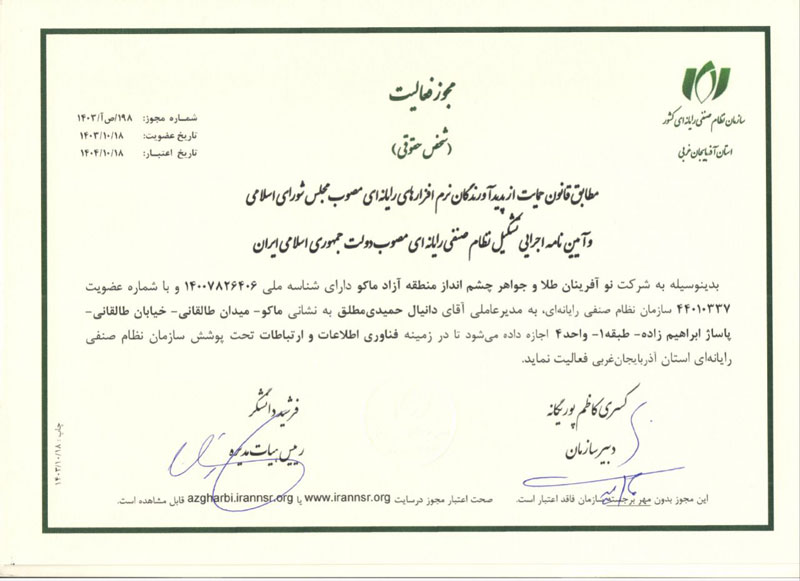 سازمان نظام صنفی رایانه ای کشور
استان آذربایجان غربی
مجوز فعالیت
(شخص حقوقی)
شماره مجوز: ۱۹۸/ص‌آ/۱۴۰۳
تاریخ عضویت: ۱۴۰۳/۱۰/۱۸
تاریخ اعتبار: ۱۴۰۴/۱۰/۱۸
مطابق قانون حمایت از پدیدآورندگان نرم افزارهای رایانه ای مصوب مجلس شورای اسلامی
و آیین نامه اجرایی تشکیل نظام صنفی رایانه ای مصوب دولت جمهوری اسلامی ایران
بدینوسیله به شرکت نو آفرینان طلا و جواهر چشم انداز منطقه آزاد ماکو دارای شناسه ملی ۱۴۰۰۷۸۲۶۴۰۶ و با شماره عضویت
۴۴۰۱۰۳۳۷ سازمان نظام صنفی رایانه‌ای، به مدیرعاملی آقای دانیال حمیدی‌مطلق به نشانی ماکو- میدان طالقانی- خیابان طالقانی-
پاساژ ابراهیم زاده- طبقه۱- واحد۴ اجازه داده می‌شود تا در زمینه فناوری اطلاعات و ارتباطات تحت پوشش سازمان نظام صنفی
رایانه‌ای استان آذربایجان‌غربی فعالیت نماید.
کسری کاظم پور یگانه
دبیر سازمان
فرشید دانشگر
رییس هیات مدیره
این مجوز بدون مهر برجسته سازمان فاقد اعتبار است.
صحت اعتبار مجوز درسایت www.irannsr.org یا azgharbi.irannsr.org قابل مشاهده است.
چاپ: ۱۴۰۳/۱۰/۱۸